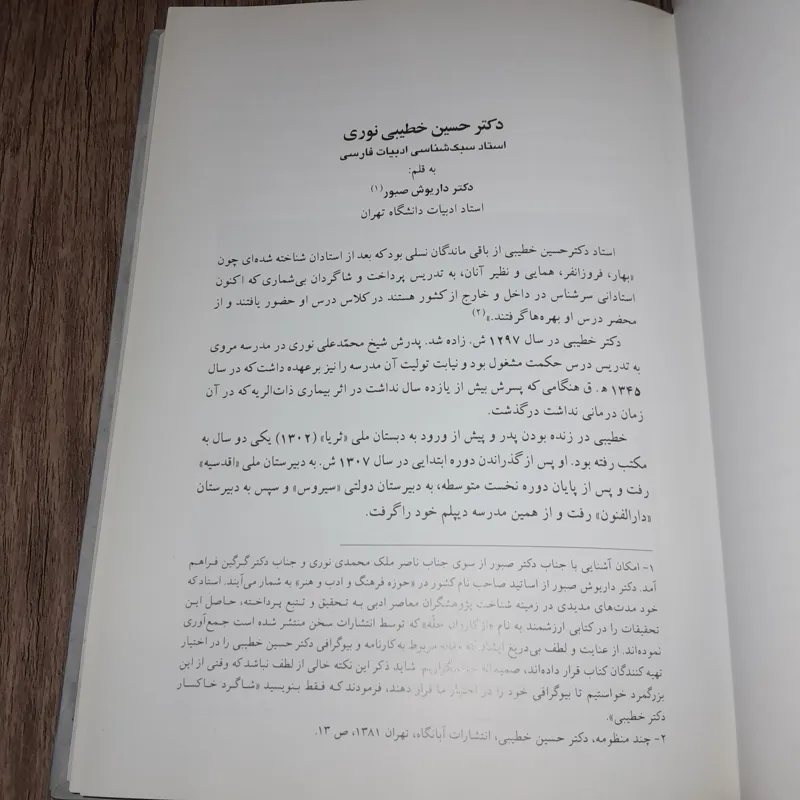 دکتر حسین خطیبی نوری
استاد سبک‌شناسی ادبیات فارسی
به قلم:
دکتر داریوش صبور(۱)
استاد ادبیات دانشگاه تهران
استاد دکتر حسین خطیبی از باقی ماندگان نسلی بود که بعد از استادان شناخته شده‌ای چون
«بهار، فروزانفر، همایی و نظیر آنان، به تدریس پرداخت و شاگردان بی‌شماری که اکنون
استادانی سرشناس در داخل و خارج از کشور هستند در کلاس درس او حضور یافتند و از
محضر درس او بهره‌ها گرفتند.»(۲)
دکتر خطیبی در سال ۱۲۹۷ ش. زاده شد. پدرش شیخ محمّدعلی نوری در مدرسه مروی
به تدریس درس حکمت مشغول بود و نیابت تولیت آن مدرسه را نیز برعهده داشت که در سال
۱۳۴۵ ه‍. ق هنگامی که پسرش بیش از یازده سال نداشت در اثر بیماری ذات‌الریه که در آن
زمان درمانی نداشت درگذشت.
خطیبی در زنده بودن پدر و پیش از ورود به دبستان ملی «ثریا» (۱۳۰۲) یکی دو سال به
مکتب رفته بود. او پس از گذراندن دوره ابتدایی در سال ۱۳۰۷ ش. به دبیرستان ملی «اقدسیه»
رفت و پس از پایان دوره نخست متوسطه، به دبیرستان دولتی «سیروس» و سپس به دبیرستان
«دارالفنون» رفت و از همین مدرسه دیپلم خود را گرفت.
۱- امکان آشنایی با جناب دکتر صبور از سوی جناب ناصر ملک محمدی نوری و جناب دکتر گرگین فراهم
آمد. دکتر داریوش صبور از اساتید صاحب نام کشور در «حوزه فرهنگ و ادب و هنر» به شمار می‌آیند. استاد که
خود مدت‌های مدیدی در زمینه شناخت پژوهشگران معاصر ادبی به تحقیق و تتبع پرداخته، حاصل این
تحقیقات را در کتابی ارزشمند به نام «از کاروان حلّه» که توسط انتشارات سخن منتشر شده است جمع‌آوری
نموده‌اند. از عنایت و لطف بی‌دریغ ایشان که مربوط به کارنامه و بیوگرافی دکتر حسین خطیبی را در اختیار
تهیه کنندگان کتاب قرار داده‌اند، صمیمانه شاید ذکر این نکته خالی از لطف نباشد که وقتی از این
بزرگمرد خواستیم تا بیوگرافی خود را در اختیار ما قرار دهند، فرمودند که فقط بنویسید «شاگرد خاکسار
دکتر خطیبی».
۲- چند منظومه، دکتر حسین خطیبی، انتشارات آبانگاه، تهران ۱۳۸۱، ص ۱۳.